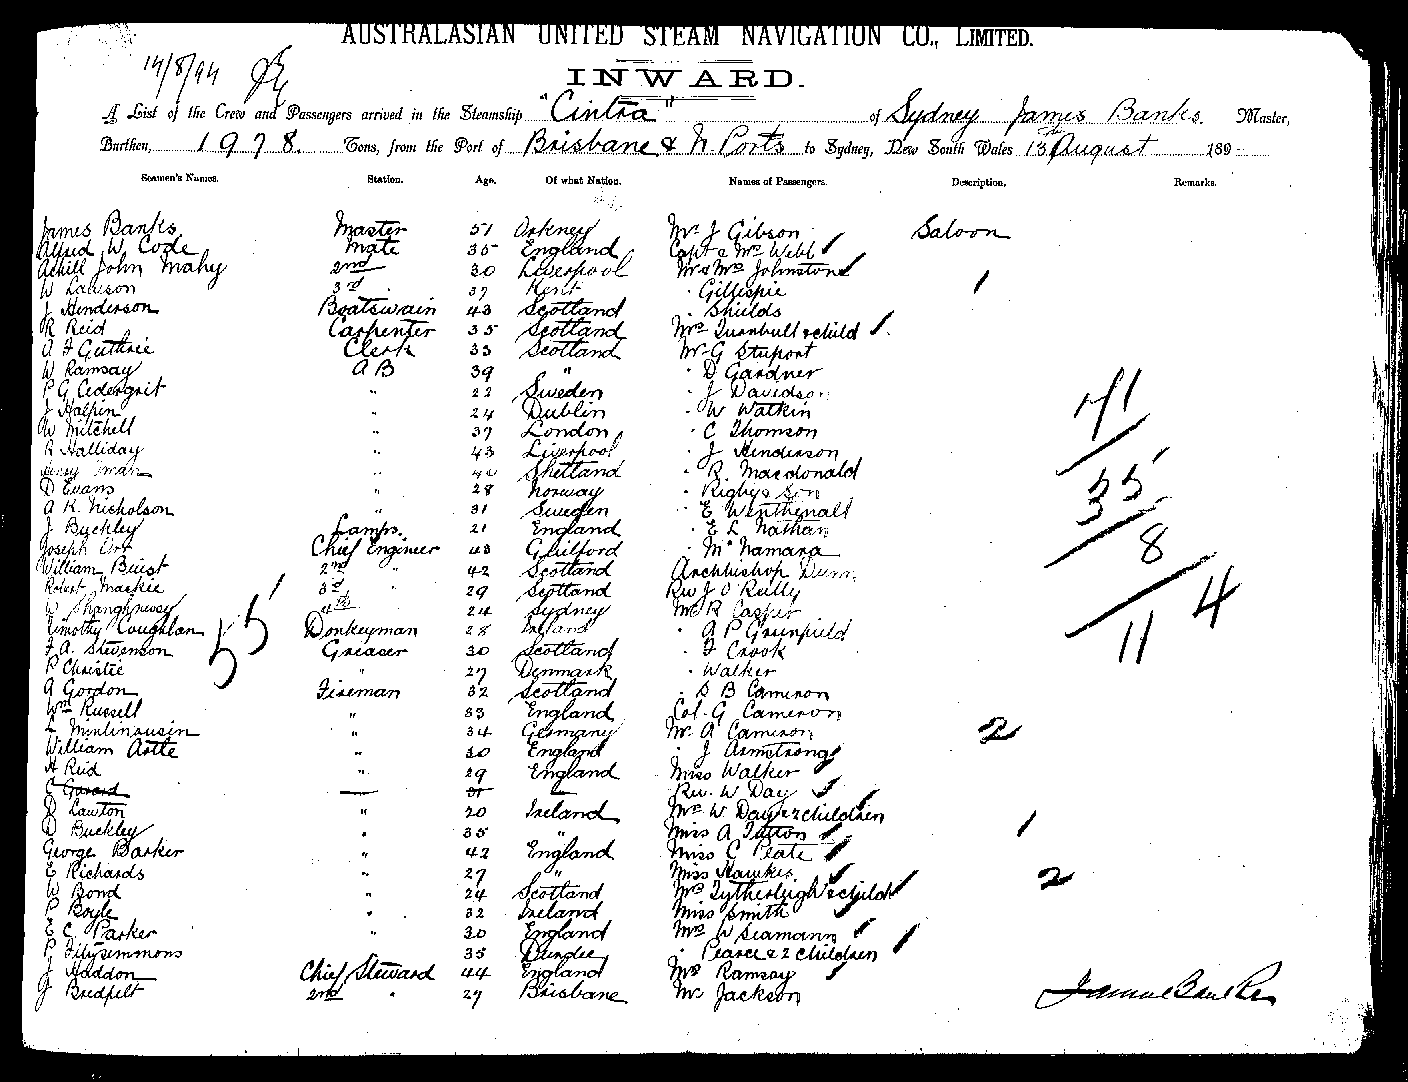 AUSTRALASIAN UNITED STEAM NAVIGATION CO., LIMITED.
14/8/94
INWARD.
A List of the Crew and Passengers arrived in the Steamship "Cintra" of Sydney James Banks. Master,
Burthen, 1978. Tons, from the Port of Brisbane & N. Ports to Sydney, New South Wales 13th August 189-
Seamen's Names. Station. Age. Of what Nation. Names of Passengers. Description. Remarks.
James Banks Master 51 Orkney Mr J Gibson Saloon
Alfred W Code Mate 35 England Capt & Mrs Webb
Achill John Mahy 2nd 30 Liverpool Mr & Mrs Johnstone
W Lawson 3rd 37 Kent " Gillespie 1
J Henderson Boatswain 43 Scotland " Shields
R Reid Carpenter 35 Scotland Mrs Turnbull & child
A F Guthrie Clerk 33 Scotland Mr G Stuport
W Ramsay A B 39 " " D Gardner
P G Cedergrit " 22 Sweden " J Davidson
J Halpin " 24 Dublin " W Watkin 71
W Mitchell " 37 London " C Thomson
R Halliday " 43 Liverpool " J Henderson
" Shetland " R. Macdonald
D Evans " 28 Norway " Rigby & Son 55
A K. Nicholson " 31 Sweden " E Wenthenall
J Buckley Lamps. 21 England " E L Nathan
Joseph Chief Engineer 43 Guilford " McNamara 8
William Buist 2nd " 42 Scotland Archbishop Dunn
Robert Mackie 3rd " 29 Scotland Rev J O'Reilly
W Shanghnessy 4th 24 Sydney Mr R Casper 4
Timothy Coughlan 55 Donkeyman 28 Ireland " A P Greenfield
F. A. Stevenson Greaser 30 Scotland " F Crook 11
P Christie " 27 Denmark " Walker
A Gordon Fireman 32 Scotland " D B Cameron
Wm Russell " 33 England Col. G Cameron
" 34 Germany Mr A Cameron 2
William Astle " 30 England " J Armstrong
H Reid " 29 England Miss Walker
C Gerard — 31 — Rev. W Day
D Lawton " 20 Ireland Mrs W Day & 2 children
D Buckley " 35 " Miss A Tutton 1
George Barker " 42 England Miss C Peate
E Richards " 27 " Miss Hawkes 2
W Bond " 24 Scotland Mrs Tytherleigh & child
P Boyle " 32 Ireland Miss Smith
E C. Parker " 30 England Mrs W Seamann
P Fitzsimmons 35 Dundee " Pearce & 2 children
J Haddon Chief Steward 44 England Mrs Ramsay
J Bredfelt 2nd " 27 Brisbane Mr Jackson
James Banks